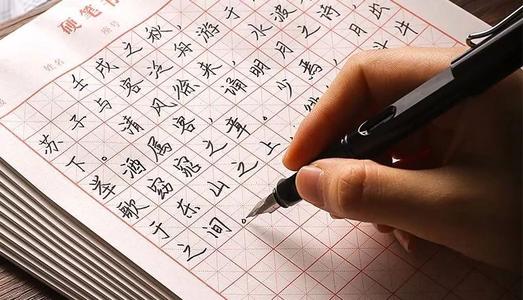 硬笔书
姓名
座号
壬戌之秋，
苏子与客泛舟游于
下。清风徐来，水波
举酒属客，诵明月之诗，
歌窈窕之章。少焉，月出
于东山之上，斗牛
之间。